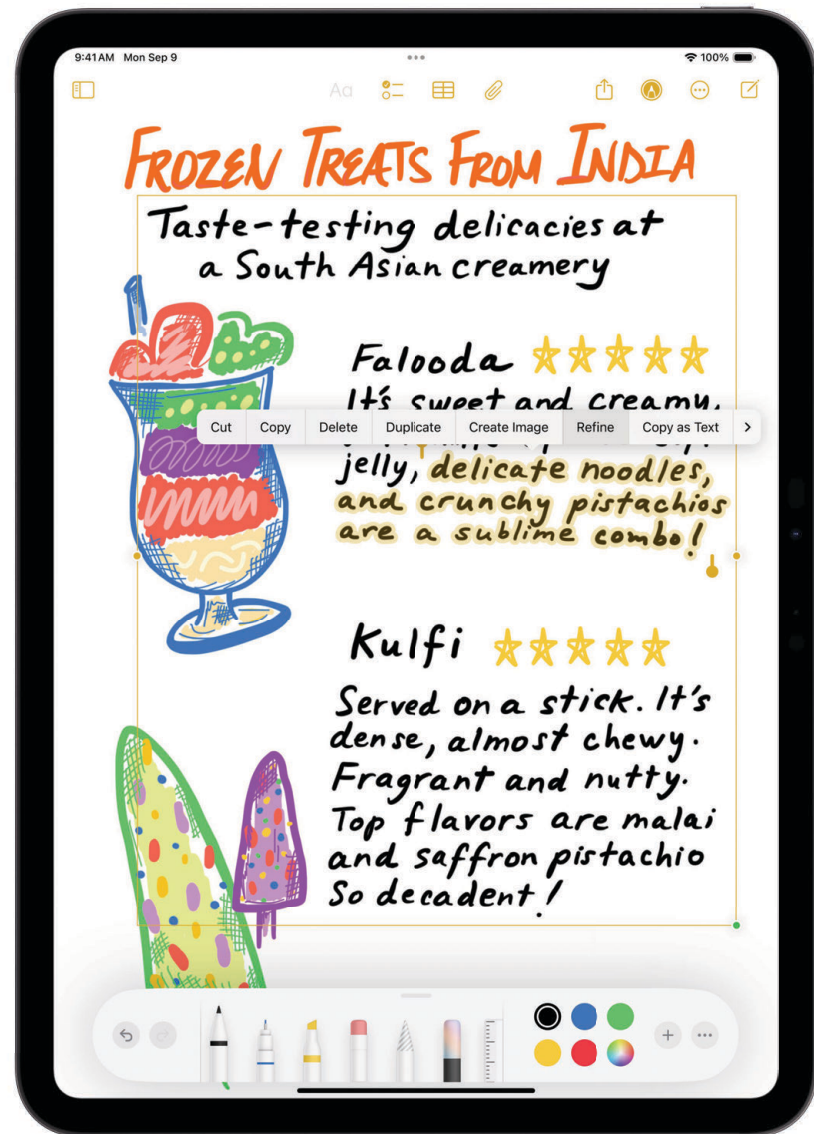 9:41 AM Mon Sep 9
100%
Aa
FROZEN TREATS FROM INDIA
Taste-testing delicacies at
a South Asian creamery
Falooda
It's sweet and creamy,
Cut Copy Delete Duplicate Create Image Refine Copy as Text
jelly, delicate noodles,
and crunchy pistachios
are a sublime combo!
Kulfi
Served on a stick. It's
dense, almost chewy.
Fragrant and nutty.
Top flavors are malai
and saffron pistachio
So decadent!